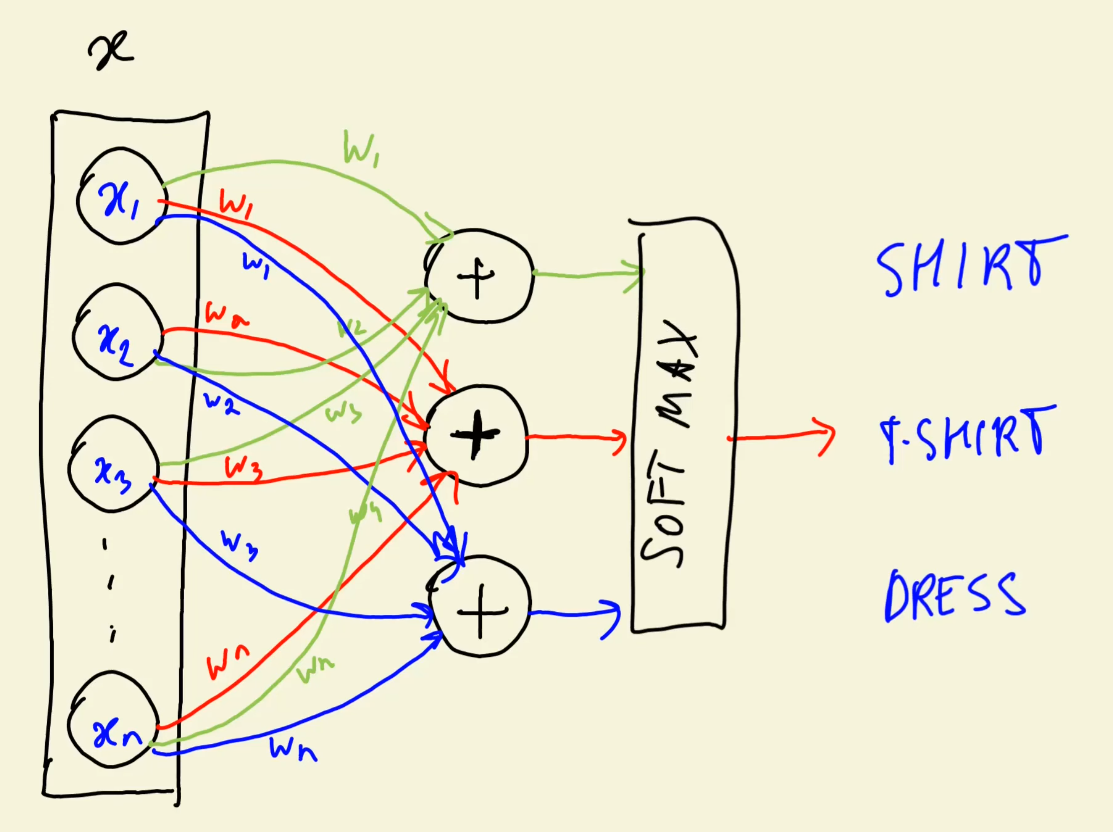 x
x1
x2
x3
xn
W1
W1
W1
W2
W2
W2
W3
W3
W3
Wn
Wn
Wn
+
+
+
SOFT MAX
SHIRT
T-SHIRT
DRESS